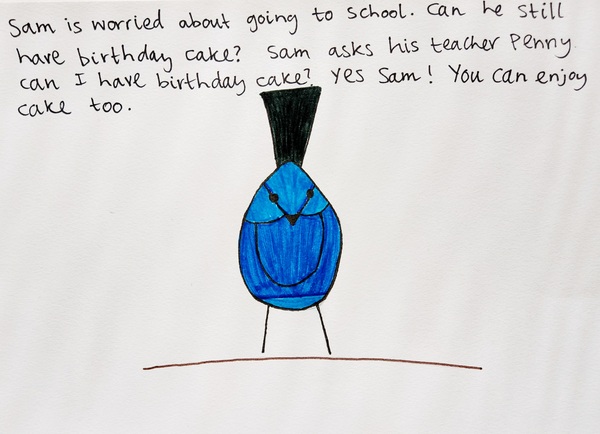 Sam is worried about going to school. Can he still
have birthday cake? Sam asks his teacher Penny.
can I have birthday cake? Yes Sam! You can enjoy
cake too.